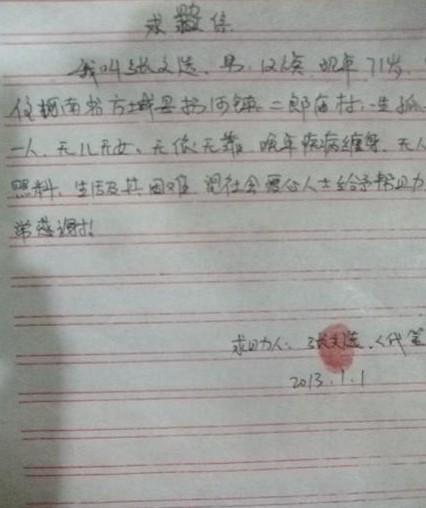 求救信
我叫张文选、男、汉族、现年71岁、
住河南省方城县拐河镇二郎庙村、一生孤
一人、无儿无女、无依无靠、晚年疾病缠身、无人
照料、生活及其困难 望社会爱心人士给予帮助
非常感谢!
求助人: 张文选、(代笔
2013.1.1